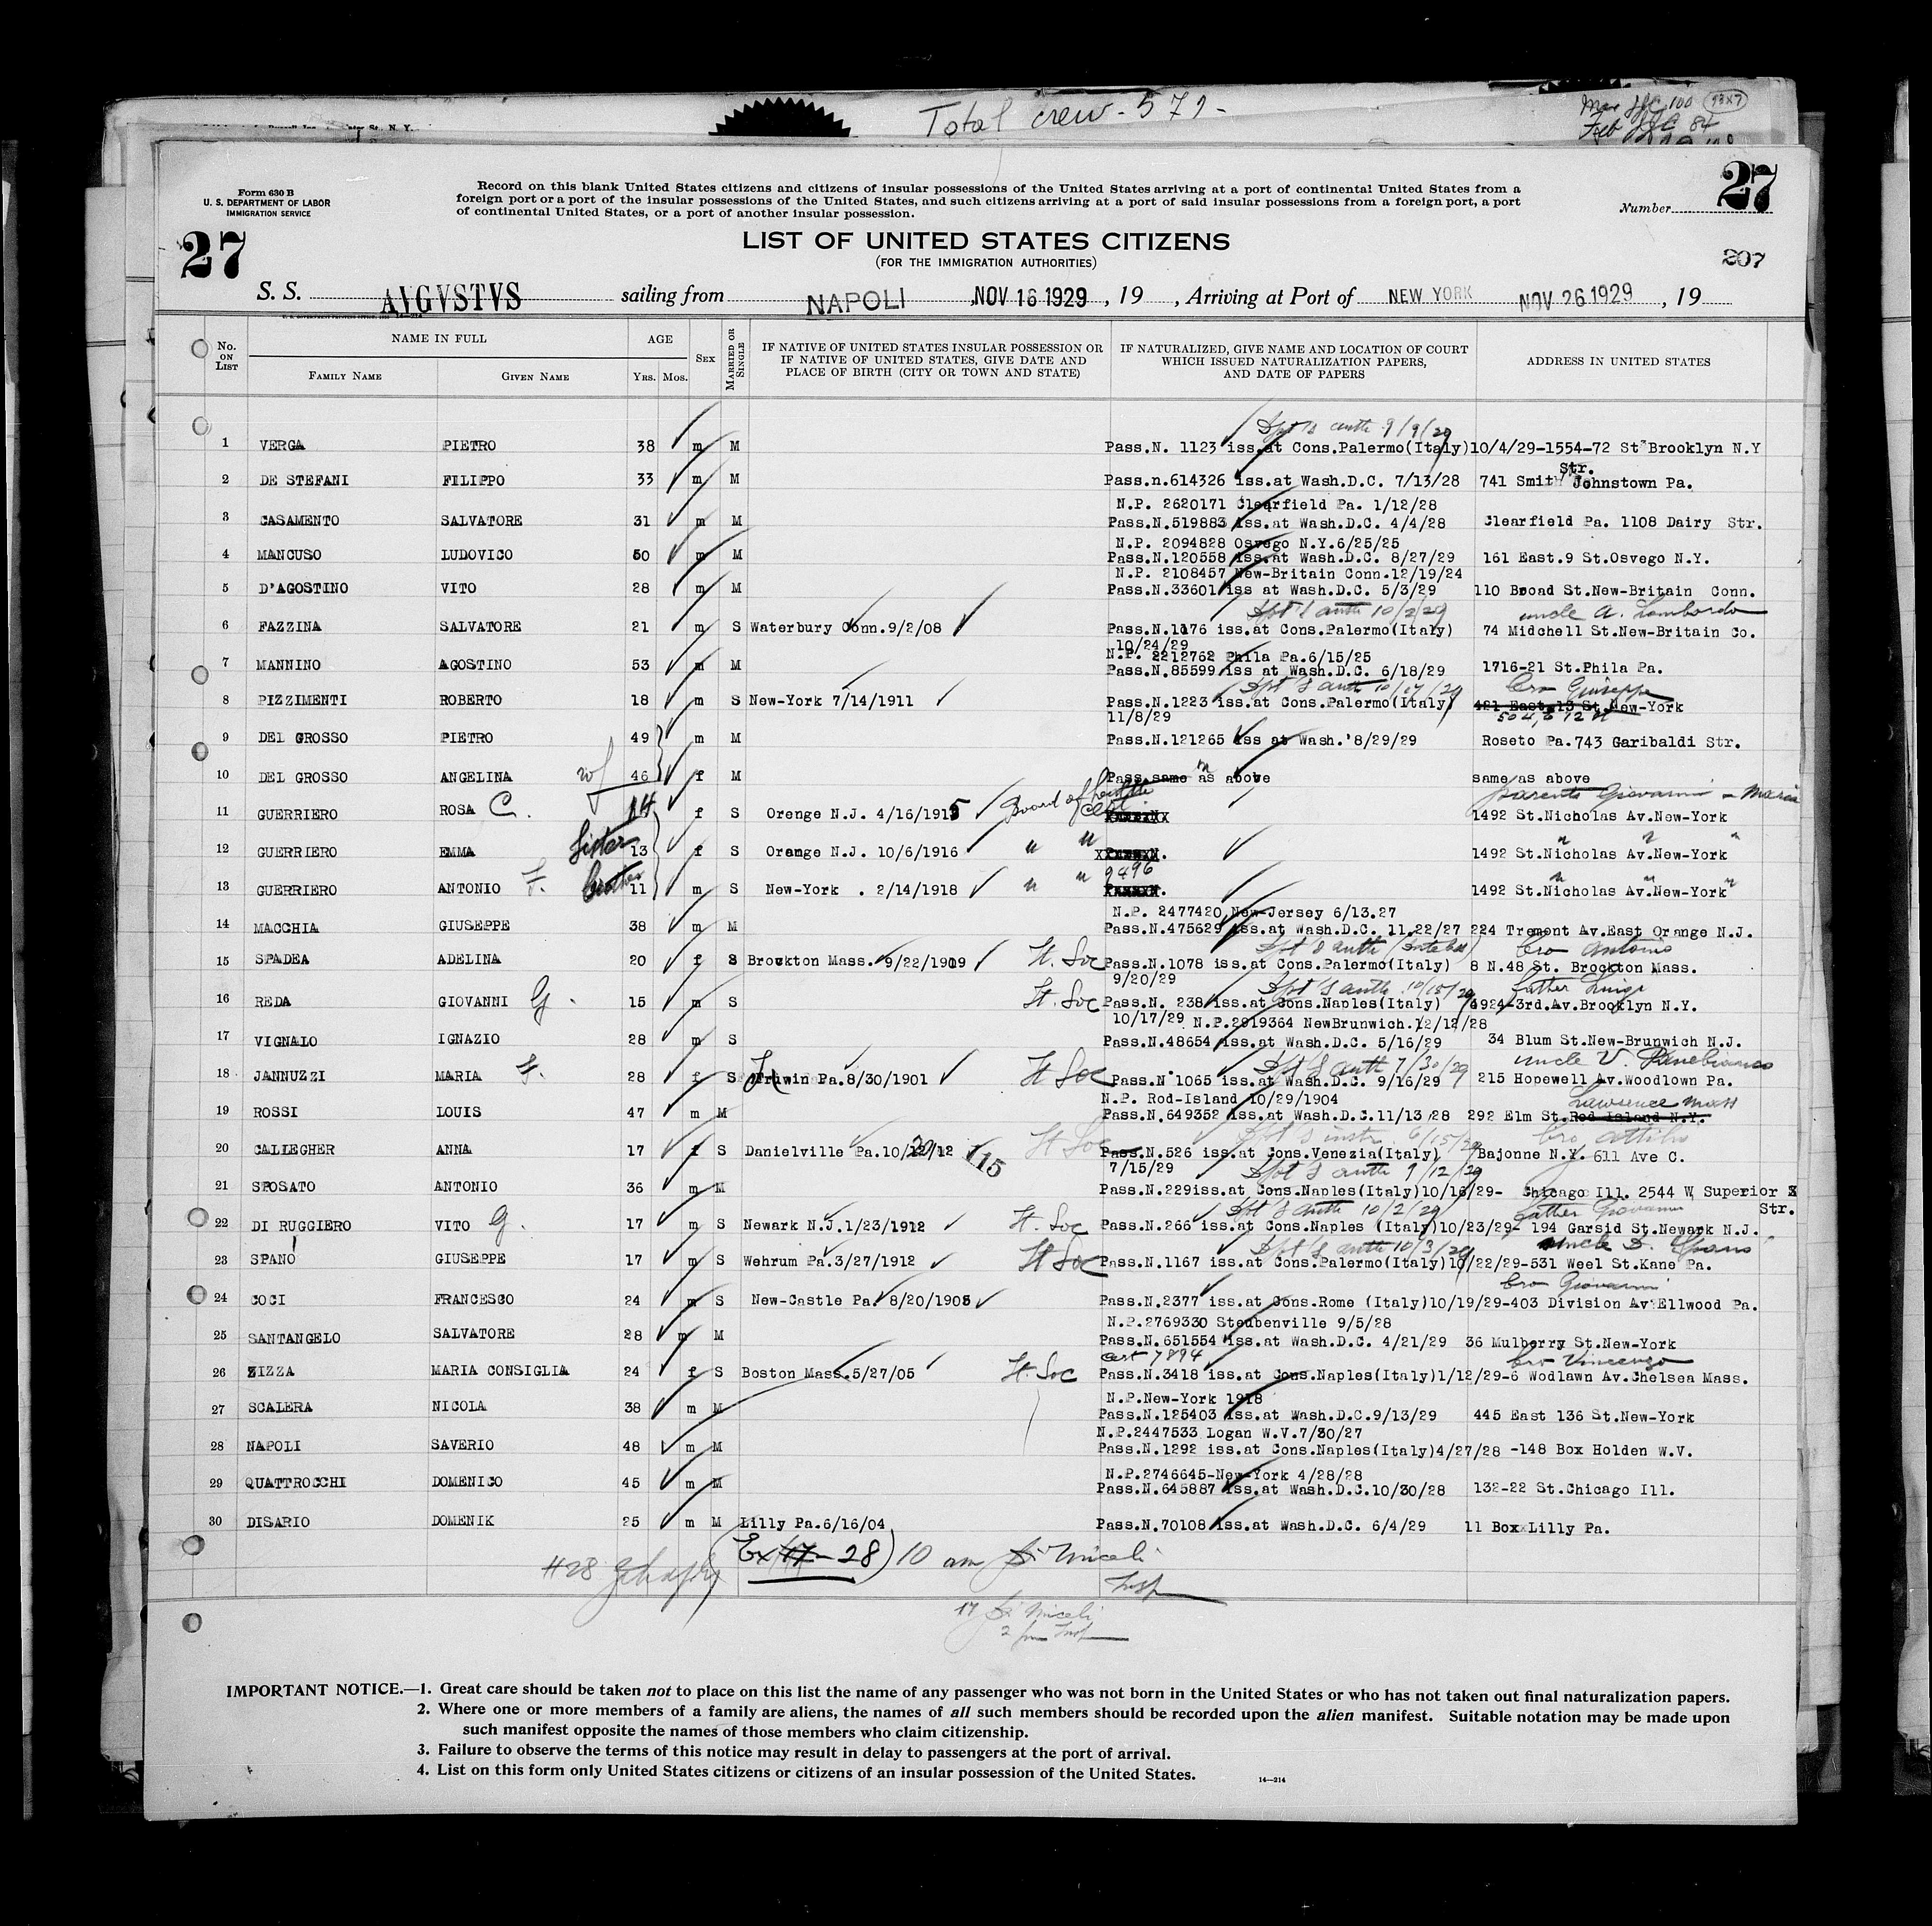 Total crew - 571 -
Mar 100
Feb 84
Form 630 B
U. S. DEPARTMENT OF LABOR
IMMIGRATION SERVICE
Record on this blank United States citizens and citizens of insular possessions of the United States arriving at a port of continental United States from a
foreign port or a port of the insular possessions of the United States, and such citizens arriving at a port of said insular possessions from a foreign port, a port
of continental United States, or a port of another insular possession.
27
Number
27
LIST OF UNITED STATES CITIZENS
(FOR THE IMMIGRATION AUTHORITIES)
207
S. S. AVGVSTVS sailing from NAPOLI, NOV 16 1929, 19 , Arriving at Port of NEW YORK NOV 26 1929, 19
No. ON LIST
NAME IN FULL
FAMILY NAME
GIVEN NAME
AGE
YRS. MOS.
SEX
MARRIED OR SINGLE
IF NATIVE OF UNITED STATES INSULAR POSSESSION OR
IF NATIVE OF UNITED STATES, GIVE DATE AND
PLACE OF BIRTH (CITY OR TOWN AND STATE)
IF NATURALIZED, GIVE NAME AND LOCATION OF COURT
WHICH ISSUED NATURALIZATION PAPERS,
AND DATE OF PAPERS
ADDRESS IN UNITED STATES
Dpt's auth 9/9/29
1 VERGA PIETRO 38 m M Pass.N. 1123 iss.at Cons.Palermo(Italy)10/4/29-1554-72 St Brooklyn N.Y
Str.
2 DE STEFANI FILIPPO 33 m M Pass.n.614326 iss.at Wash.D.C. 7/13/28 741 Smith Johnstown Pa.
N.P. 2620171 Clearfield Pa. 1/12/28
3 CASAMENTO SALVATORE 31 m M Pass.N.519883 iss.at Wash.D.C. 4/4/28 Clearfield Pa. 1108 Dairy Str.
N.P. 2094828 Osvego N.Y.6/25/25
4 MANCUSO LUDOVICO 50 m M Pass.N.120558 iss.at Wash.D.C. 8/27/29 161 East.9 St.Osvego N.Y.
N.P. 2108457 New-Britain Conn.12/19/24
5 D'AGOSTINO VITO 28 m M Pass.N.33601 iss at Wash.D.C. 5/3/29 110 Broad St.New-Britain Conn.
Dpt's auth 10/2/29 uncle A. Lombardo
6 FAZZINA SALVATORE 21 m S Waterbury Conn.9/2/08 Pass.N.1176 iss.at Cons.Palermo(Italy) 74 Midchell St.New-Britain Co.
10/24/29
N.P. 2212762 Phila Pa.6/15/25
7 MANNINO AGOSTINO 53 m M Pass.N.85599 iss at Wash.D.C. 6/18/29 1716-21 St.Phila Pa.
Dpt's auth 10/17/29 bro Giuseppe
8 PIZZIMENTI ROBERTO 18 m S New-York 7/14/1911 Pass.N.1223 iss.at Cons.Palermo(Italy) 421 East 13 St New-York
11/8/29 504 E 12 St
9 DEL GROSSO PIETRO 49 m M Pass.N.121265 iss at Wash. 8/29/29 Roseto Pa.743 Garibaldi Str.
10 DEL GROSSO ANGELINA wf 46 f M Pass same as above same as above
Board of health parents Giovanni - Maria
11 GUERRIERO ROSA C. 14 f S Orenge N.J. 4/16/1915 Cert 1492 St.Nicholas Av.New-York
12 GUERRIERO EMMA Sister 13 f S Orange N.J. 10/6/1916 " " 1492 St.Nicholas Av.New-York
9496
13 GUERRIERO ANTONIO F. brother 11 m S New-York . 2/14/1918 " " 1492 St.Nicholas Av.New-York
N.P. 2477420 New-Jersey 6/13.27
14 MACCHIA GIUSEPPE 38 m M Pass.N.475629 iss.at Wash.D.C. 11.22/27 224 Tremont Av.East Orange N.J.
Dpt's auth bro Antonio
15 SPADEA ADELINA 20 f S Brockton Mass. 9/22/1909 It. Soc Pass.N.1078 iss.at Cons.Palermo(Italy) 8 N.48 St. Brockton Mass.
9/20/29
Dpt's auth 10/15/29 father Luigi
16 REDA GIOVANNI G. 15 m S It. Soc Pass.N. 238 iss.at Cons.Naples(Italy) 4924-3rd.Av.Brooklyn N.Y.
10/17/29 N.P.2919364 NewBrunwich.12/12/28
17 VIGNALO IGNAZIO 28 m S Pass.N.48654 iss.at Wash.D.C. 5/16/29 34 Blum St.New-Brunwich N.J.
Dpt's auth 7/30/29 uncle V.
18 JANNUZZI MARIA F. 28 f S Iruwin Pa.8/30/1901 It Soc Pass.N 1065 iss.at Wash.D.C. 9/16/29 215 Hopewell Av.Woodlown Pa.
N.P. Rod-Island 10/29/1904 Lawrence Mass
19 ROSSI LOUIS 47 m M Pass.N.649352 iss.at Wash.D.C.11/13/28 292 Elm St.Rod-Island N.Y.
Dpt's instr. 6/15/29 bro Attilio
20 CALLEGHER ANNA 17 f S Danielville Pa.10/20/12 115 It Soc Pass.N.526 iss.at Cons.Venezia(Italy) Bajonne N.Y. 611 Ave C.
7/15/29 Dpt's auth 9/12/29
21 SPOSATO ANTONIO 36 m M Pass.N.229iss.at Cons.Naples(Italy)10/16/29- Chicago Ill. 2544 W Superior
Dpt's auth 10/2/29 father Giovanni Str.
22 DI RUGGIERO VITO G. 17 m S Newark N.J.1/23/1912 It. Soc Pass.N.266 iss.at Cons.Naples (Italy)10/23/29- 194 Garsid St.Newark N.J.
Dpt's auth 10/3/29 uncle D. Spano
23 SPANO GIUSEPPE 17 m S Wehrum Pa.3/27/1912 It Soc Pass.N.1167 iss.at Cons.Palermo(Italy)10/22/29-531 Weel St.Kane Pa.
bro Giovanni
24 COCI FRANCESCO 24 m S New-Castle Pa. 8/20/1905 Pass.N.2377 iss.at Cons.Rome (Italy)10/19/29-403 Division Av.Ellwood Pa.
N.P.2769330 Steubenville 9/5/28
25 SANTANGELO SALVATORE 28 m M Pass.N.651554 iss.at Wash.D.C. 4/21/29 36 Mulberry St.New-York
cert 7894 bro Vincenzo
26 ZIZZA MARIA CONSIGLIA 24 f S Boston Mass.5/27/05 It. Soc Pass.N.3418 iss.at Cons.Naples(Italy)1/12/29-6 Wodlawn Av.Chelsea Mass.
N.P.New-York 1918
27 SCALERA NICOLA 38 m M Pass.N.125403 iss.at Wash.D.C.9/13/29 445 East 136 St.New-York
N.P.2447533 Logan W.V.7/30/27
28 NAPOLI SAVERIO 48 m M Pass.N.1292 iss.at Cons.Naples(Italy)4/27/28 -148 Box Holden W.V.
N.P.2746645-New-York 4/28/28
29 QUATTROCCHI DOMENICO 45 m M Pass.N.645887 iss.at Wash.D.C.10/30/28 132-22 St.Chicago Ill.
30 DISARIO DOMENIK 25 m M Lilly Pa.6/16/04 Pass.N.70108 iss.at Wash.D.C. 6/4/29 11 Box Lilly Pa.
#28 (Ex 17 - 28) 10 am Miceli
Insp
17 Miceli
2 pm Insp
IMPORTANT NOTICE.—1. Great care should be taken not to place on this list the name of any passenger who was not born in the United States or who has not taken out final naturalization papers.
2. Where one or more members of a family are aliens, the names of all such members should be recorded upon the alien manifest. Suitable notation may be made upon
such manifest opposite the names of those members who claim citizenship.
3. Failure to observe the terms of this notice may result in delay to passengers at the port of arrival.
4. List on this form only United States citizens or citizens of an insular possession of the United States.
14—214